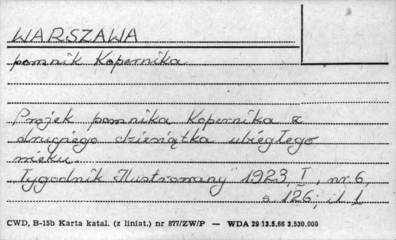 WARSZAWA
pomnik Kopernika
Projek pomnika Kopernika z
drugiego dziesiątka ubiegłego
wieku.
Tygodnik Ilustrowany 1923, I, nr 6,
s. 126; il 1
CWD, B-15b Karta katal. (z liniat.) nr 877/ZW/P — WDA 29 13.5.66 3.530.000